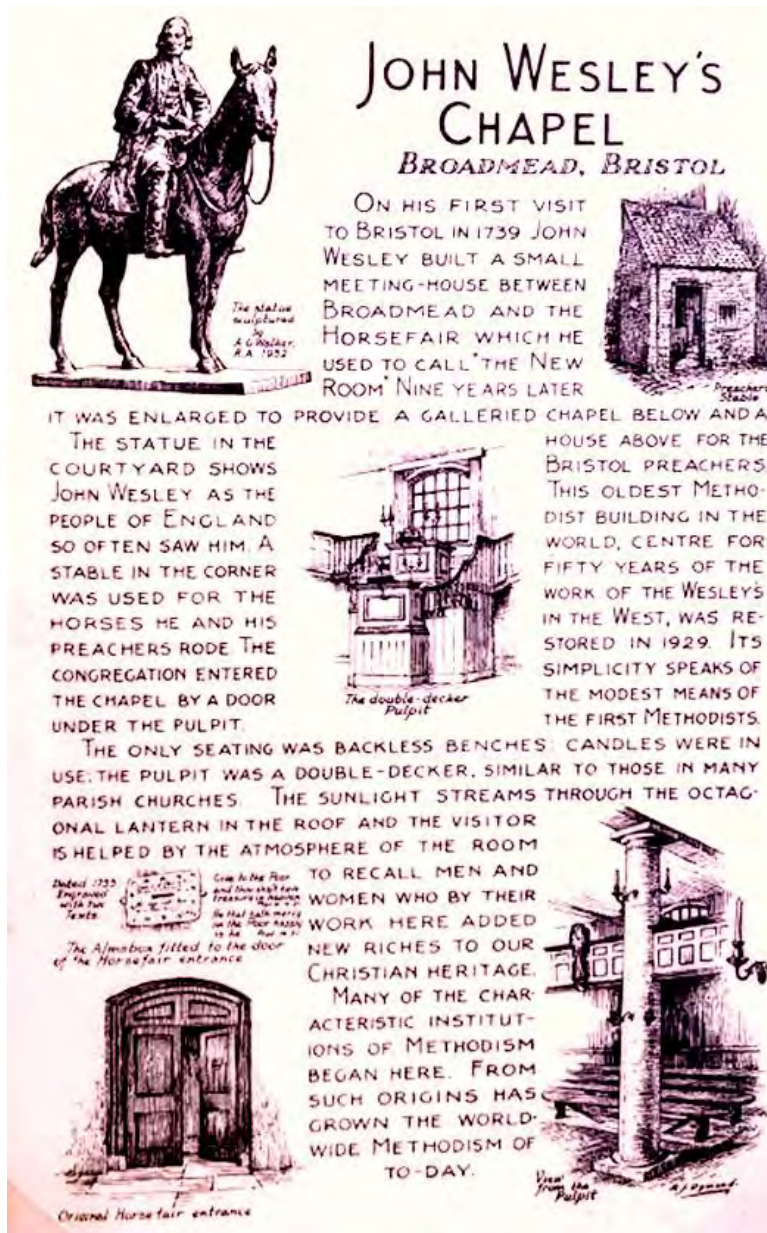 JOHN WESLEY'S
CHAPEL
BROADMEAD, BRISTOL
ON HIS FIRST VISIT
TO BRISTOL IN 1739 JOHN
WESLEY BUILT A SMALL
MEETING-HOUSE BETWEEN
BROADMEAD AND THE
HORSEFAIR WHICH HE
USED TO CALL "THE NEW
ROOM" NINE YEARS LATER
IT WAS ENLARGED TO PROVIDE A GALLERIED CHAPEL BELOW AND A
HOUSE ABOVE FOR THE
BRISTOL PREACHERS.
THIS OLDEST METHO-
DIST BUILDING IN THE
WORLD, CENTRE FOR
FIFTY YEARS OF THE
WORK OF THE WESLEY'S
IN THE WEST, WAS RE-
STORED IN 1929. ITS
SIMPLICITY SPEAKS OF
THE MODEST MEANS OF
THE FIRST METHODISTS.
The statue
sculptured
by
A.G. Walker,
R.A. 1932
Preachers'
Stable
THE STATUE IN THE
COURTYARD SHOWS
JOHN WESLEY AS THE
PEOPLE OF ENGLAND
SO OFTEN SAW HIM. A
STABLE IN THE CORNER
WAS USED FOR THE
HORSES HE AND HIS
PREACHERS RODE. THE
CONGREGATION ENTERED
THE CHAPEL BY A DOOR
UNDER THE PULPIT.
The double-decker
Pulpit
THE ONLY SEATING WAS BACKLESS BENCHES: CANDLES WERE IN
USE; THE PULPIT WAS A DOUBLE-DECKER, SIMILAR TO THOSE IN MANY
PARISH CHURCHES. THE SUNLIGHT STREAMS THROUGH THE OCTAG-
ONAL LANTERN IN THE ROOF AND THE VISITOR
IS HELPED BY THE ATMOSPHERE OF THE ROOM
TO RECALL MEN AND
WOMEN WHO BY THEIR
WORK HERE ADDED
NEW RICHES TO OUR
CHRISTIAN HERITAGE.
MANY OF THE CHAR-
ACTERISTIC INSTITUT-
IONS OF METHODISM
BEGAN HERE. FROM
SUCH ORIGINS HAS
GROWN THE WORLD-
WIDE METHODISM OF
TO-DAY.
Dated 1755
Engraved
with two
Texts.
Give to the Poor
and thou shalt have
treasure in heaven
He that hath mercy
on the Poor happy
is he
The Almsbox fitted to the door
of the Horsefair entrance
Original Horsefair entrance
View
from the
Pulpit